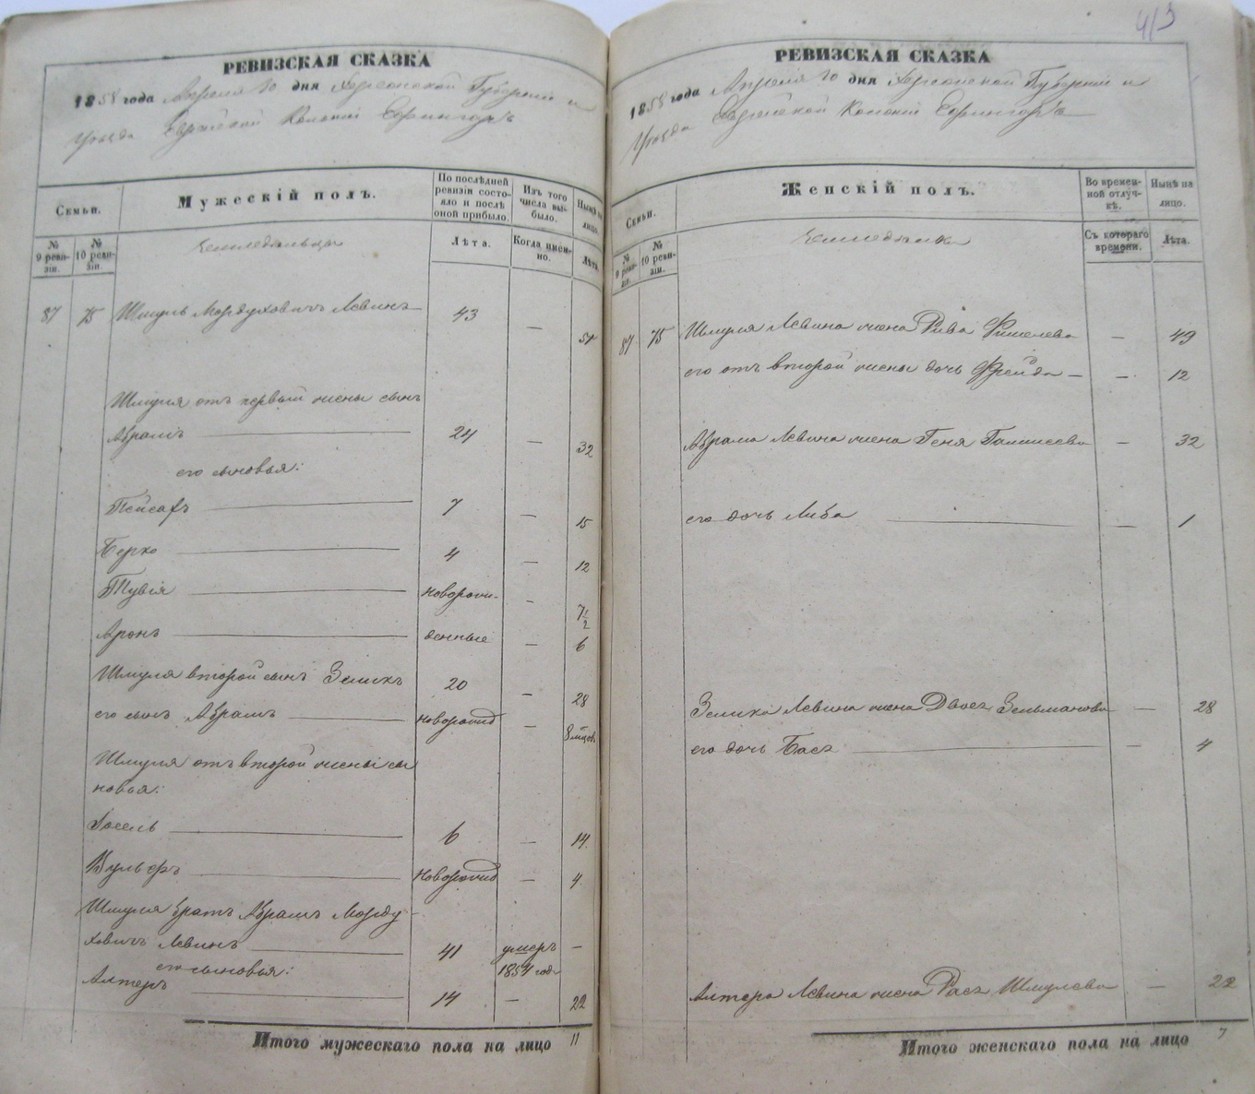 413
РЕВИЗСКАЯ СКАЗКА
1858 года Апреля 10 дня Херсонской Губернии и
Уезда Еврейской Колонии Ефингаръ
Семьи.
№ 9 ревизіи.
№ 10 ревизіи.
Мужескій полъ.
По послѣдней ревизіи состояло и послѣ оной прибыло.
Изъ того числа выбыло.
Нынѣ на лицо.
Земледельцы
Лѣта.
Когда именно.
Лѣта.
87 75 Шмуль Мордуховичъ Левинъ 43 —
Шмуля отъ первый жены сынъ
Абрамъ 24 — 32
его сыновья:
Пейсахъ 7 — 15
Берко 4 — 12
Тувія новорож- — 7½
Аронъ денные — 6
Шмуля второй сынъ Зеликъ 20 — 28
его сынъ Абрамъ новорожд — 8 мцов
Шмуля отъ второй жены сы
новья:
Іосель 6 — 14
Вульфъ новорожд — 4
Шмуля братъ Абрамъ Морду-
ховичъ Левинъ 41 умеръ —
его сыновья: 1854 год
Алтеръ 14 — 22
Итого мужескаго пола на лицо 11
РЕВИЗСКАЯ СКАЗКА
1858 года Апреля 10 дня Херсонской Губерніи и
Уезда Еврейской Колоніи Ефингаръ
Семьи.
№ 9 ревизіи.
№ 10 ревизіи.
Женскій полъ.
Во временной отлучкѣ.
Нынѣ на лицо.
Земледелки
Съ котораго времени.
Лѣта.
87 75 Шмуля Левина жена Рива Фишелева — 49
его отъ второй жены дочь Фрейда — — 12
Абрама Левина жена Геня — 32
его дочь Либа — 1
Зелика Левина жена Двося Зельманова — 28
его дочь Бася — 4
Алтера Левина жена Рася Шмулева — 22
Итого женскаго пола на лицо 7